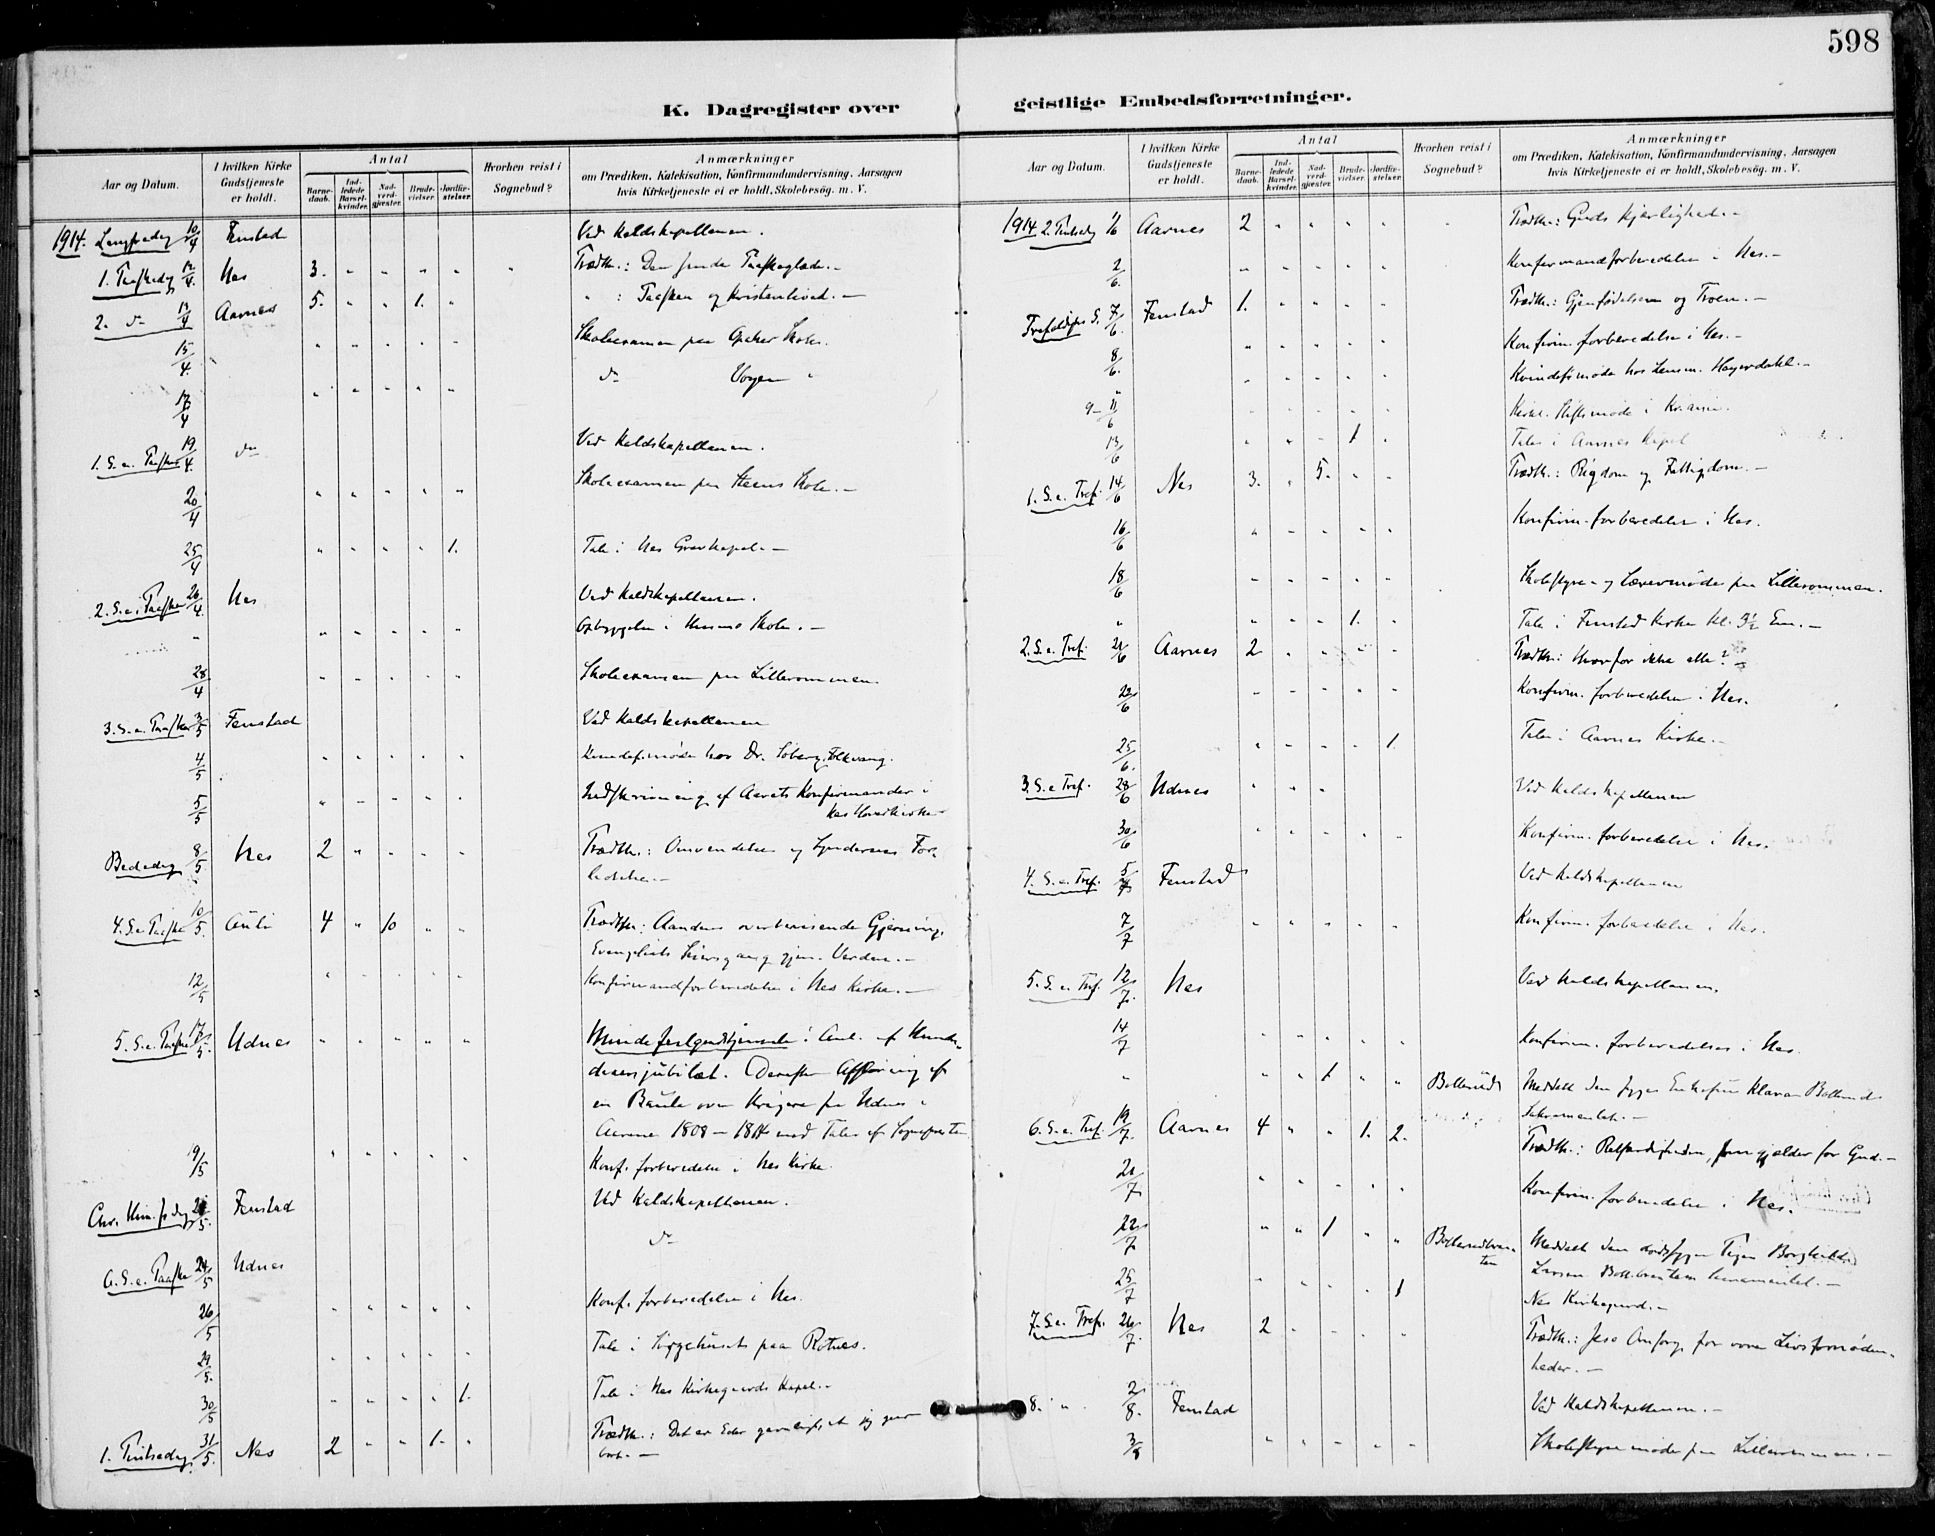 598
K. Dagregister over
Aar og Datum.
I hvilken Kirke Gudstjeneste er holdt.
Antal
Barne-daab.
Ind-ledede Barsel-kvinder.
Nad-verd-gjæster.
Brude-vielser.
Jordfæ-stelser.
Hvorhen reist i Sognebud?
Anmærkninger
om Prædiken, Katekisation, Konfirmandundervisning, Aarsagen
hvis Kirketjeneste ei er holdt, Skolebesøg. m. V.
1914. Langfredag 10/4 Fenstad Ved Kaldskapellanen.
1. Paaskedag 12/4. Nes 3. " " " " " Prædik.: Den Paaskeglæde. -
2. do 13/4 Aarnes 5. " " 1. " " : Paasken og Kristenlivet. -
15/4. " " " " " Skoleexamen paa Opaker Skole.
17/4 " " " " " do Vorgen "
1. S. e. Paaske 19/4. do Ved Kaldskapellanen.
20/4 " " " " " Skoleexamen paa Steens Skole. -
25/4 " " " " 1. Tale i Nes Gravkapel. -
2. S. e. Paaske 26/4. Nes Ved Kaldskapellanen.
" " " " " " Opbyggelse i Skole. -
28/4 " " " " " Skoleexamen paa Lilleromnen.
3. S. e. Paaske 3/5 Fenstad Ved Kaldskapellanen
4/5 " " " " " Kvindefimøde hos Dr. Solberg, Folkvang.
5/5 " " " " " Indskrivning af Aarets Konfirmander i
Nes Hovedkirke
Bededag 8/5 Nes 2 " " " " Prædik.: Omvendelse og Syndernes For-
ladelse. -
4. S. e. Paaske 10/5. Auli 4 " 10 " " Prædik.: Aandens overbevisende Gjerning.
Evangeliets Seiersgang gjen. Verden. -
12/5 " " " " " Konfirmandforberedelse i Nes Kirke. -
5. S. e. Paaske 17/5. Udnes " " " " " Mindefestgudstjeneste i Anl. af Hundre-
deaarsjubilæet. Derefter Afsløring af
en Bauta over Krigere fra Udnes i
Aarene 1808 - 1814 med Tale af Sognepresten
19/5 " " " " " Konf. forberedelse i Nes Kirke.
Chr. Him.f.dag 21/5. Fenstad Ved Kaldskapellanen.
6. S. e. Paaske 24/5 Udnes do
26/5 " " " " " Konf. forberedelse i Nes.
29/5. " " " " " Tale i Sygehuset paa Rotnes.
30/5 " " " " 1. Tale i Nes Kirkegaards Kapel. -
1. Pintsedag 31/5. Nes 2 " " 1. " Prædik.: Det er Eder gavnligt at jeg gaar
bort. -
geistlige Embedsforretninger.
Aar og Datum.
I hvilken Kirke Gudstjeneste er holdt.
Antal
Barne-daab.
Ind-ledede Barsel-kvinder.
Nad-verd-gjæster.
Brude-vielser.
Jordfæ-stelser.
Hvorhen reist i Sognebud?
Anmærkninger
om Prædiken, Katekisation, Konfirmandundervisning, Aarsagen
hvis Kirketjeneste ei er holdt, Skolebesøg. m. V.
1914 2. Pintsedag 1/6 Aarnes 2 " " " " Prædik.: Guds Kjærlighed. -
2/6. " " " " " Konfirmandforberedelse i Nes. -
Trefoldighs S. 7/6. Fenstad 1. " " " " Prædik.: Gjenfødelsen og Troen. -
8/6. " " " " " Konfirm. forberedelse i Nes. -
" " " " " " Kvindefimøde hos Lensm. Heyerdahl. -
9 - 11/6 " " " " " Kirkl. Stiftsmøde i Kr.ania.
13/6 " " " 1 " Tale i Aarnes Kapel
1. S. e. Tref. 14/6 Nes 3. " 5. " " Prædik.: Rigdom og Fattigdom. -
16/6 " " " " " Konfirm. forberedelse i Nes.
18/6 " " " " " Skolestyre- og Lærermøde paa Lilleromnen.
" " " " 1. " Tale i Fenstad Kirke kl. 3½ Em. -
2. S. e. Tref. 21/6 Aarnes 2 " " " " Prædik.: Hvorfor ikke alle? -
22/6 " " " " " Konfirm. forberedelse i Nes.
25/6. " " " " 1. Tale i Aarnes Kirke. -
3. S. e Tref. 28/6 Udnes " " " Ved Kaldskapellanen
30/6 " " " " " Konfirm. forberedelse i Nes.
4. S. e. Tref. 5/7 Fenstad Ved Kaldskapellanen
7/7 " " " " " Konfirm. forberedelse i Nes.
5. S. e. Tref. 12/7. Nes Ved Kaldskapellanen.
14/7 " " " " " Konfirm. forberedelse i Nes.
" " " 1 " " Bollerud Meddelt den syge Enkefru Klara Bollerud
Sakramentet. -
6. S. e. Tref. 19/7. Aarnes 4 " " 1. 2. Prædik.: Retfærdigheden, som gjælder for Gud. -
21/7 " " " " " Konfirm. forberedelse i Nes.
22/7 " " 1 " " Bollerudbraa-ten Meddelt den dødssyge Pige Borghild
Larsen Sacramentet. -
25/7 " " " " 1 Nes Kirkegaard. -
7. S. e. Tref. 26/7. Nes 2 " " " " Prædik.: Jesu Omsorg for vore Livsfornøden-
heder. -
8. " " 2/8. Fenstad Ved Kaldskapellanen. -
3/8 " " " " " Skolestyremøde paa Lilleromnen. -